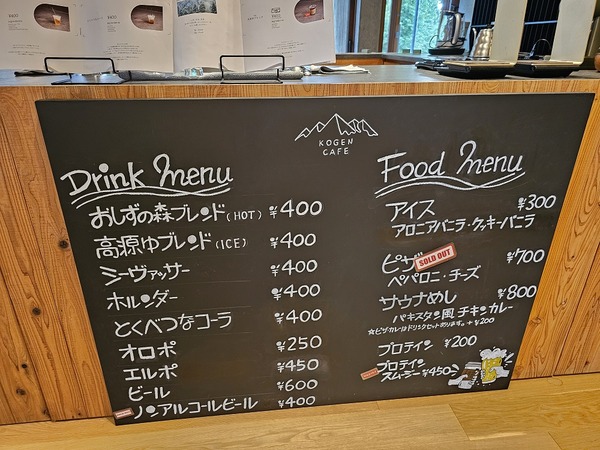 KOGEN
CAFE
Drink Menu
おしずの森ブレンド(HOT) ¥400
高源ゆブレンド(ICE) ¥400
シーヴァッサー ¥400
ホルンダー ¥400
とくべつなコーラ ¥400
オロポ ¥250
エルポ ¥450
ビール ¥600
ノンアルコールビール ¥400
Food Menu
アイス ¥300
アロニアバニラ・クッキーバニラ
ピザ SOLD OUT ¥700
ペパロニ・チーズ
サウナめし ¥800
パキスタン風チキンカレー
☆ピザ・カレーはドリンクセットあります。+¥200
プロテイン ¥200
プロテイン
スムージー ¥450